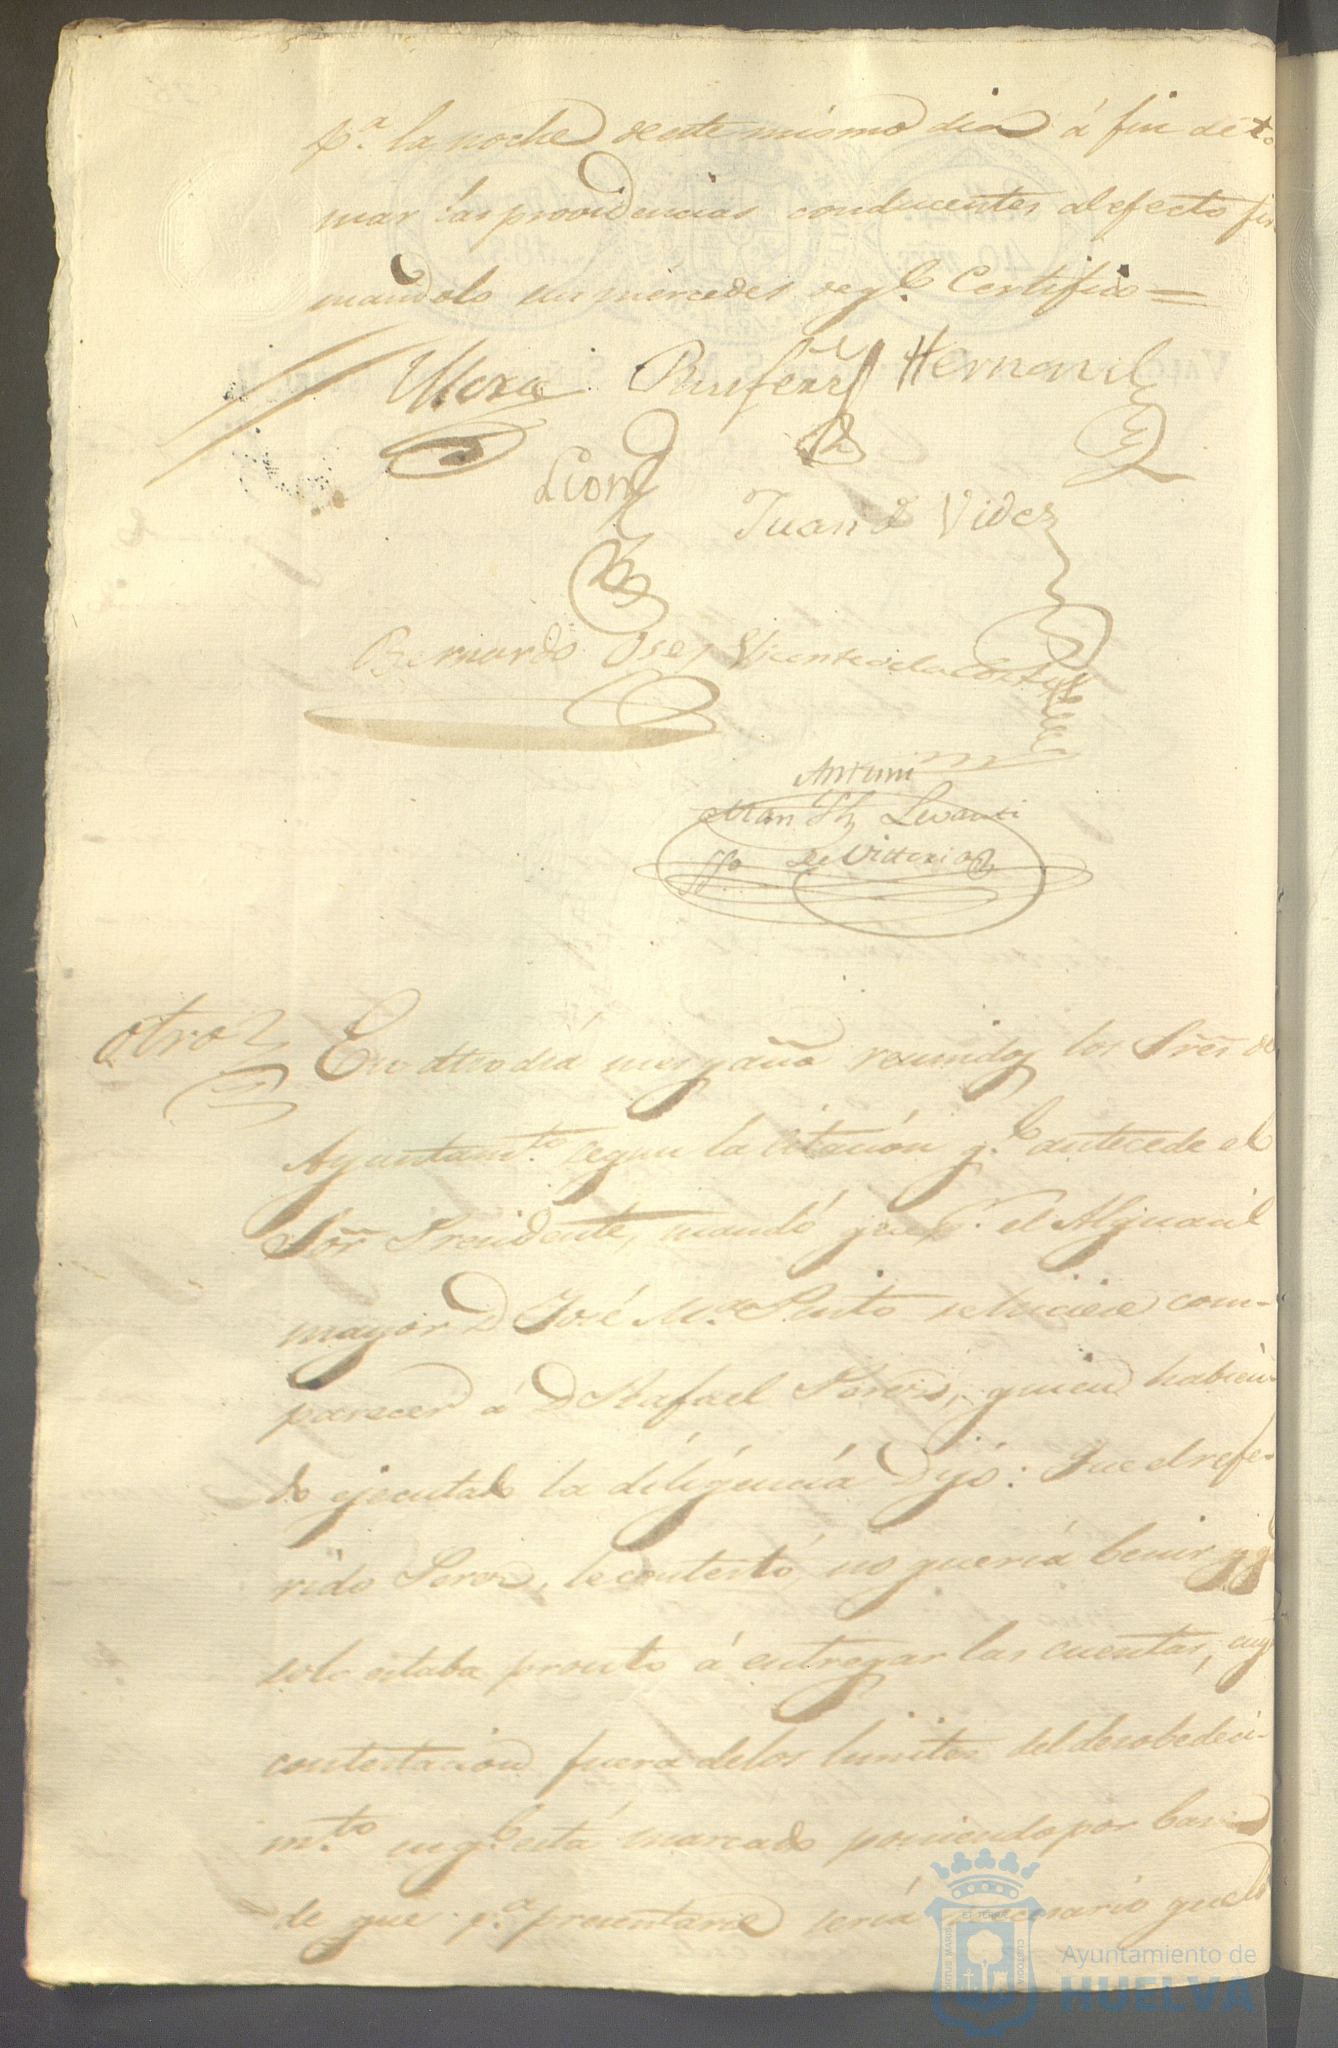 pª. la noche deeste mismo dia á fin de to
mar las providencias conducentes al efecto fir
mandolo sus mercedes de qᵉ. Certifico =
Bernardo Oses Vicente de la Corte
Leon
Juan de Videz
Hernand
Antemi
Levanti
de Vittoria
otro
En dho dia mes y año reunidos los Sres de
Ayuntamᵗᵒ. segun la citacion qᵉ. antecede el
Sor. Presidente, mandó que pʳ. el Alguacil
mayor D José Mª. Pinto se hiciese com-
parecer á D Rafael Perez, quien habien-
do ejecutado la diligencia Dijo: Que el refe-
rido Perez, le contestó, no queria benir y qᵉ
solo estaba pronto á entregar las cuentas, cuyᵃ
contestacion fuera de los limites del desobedeci-
mᵗᵒ. en qᵉ. está marcado poniendo por base
de que pª. presentarse seria necesario que lo
Ayuntamiento de
HUELVA